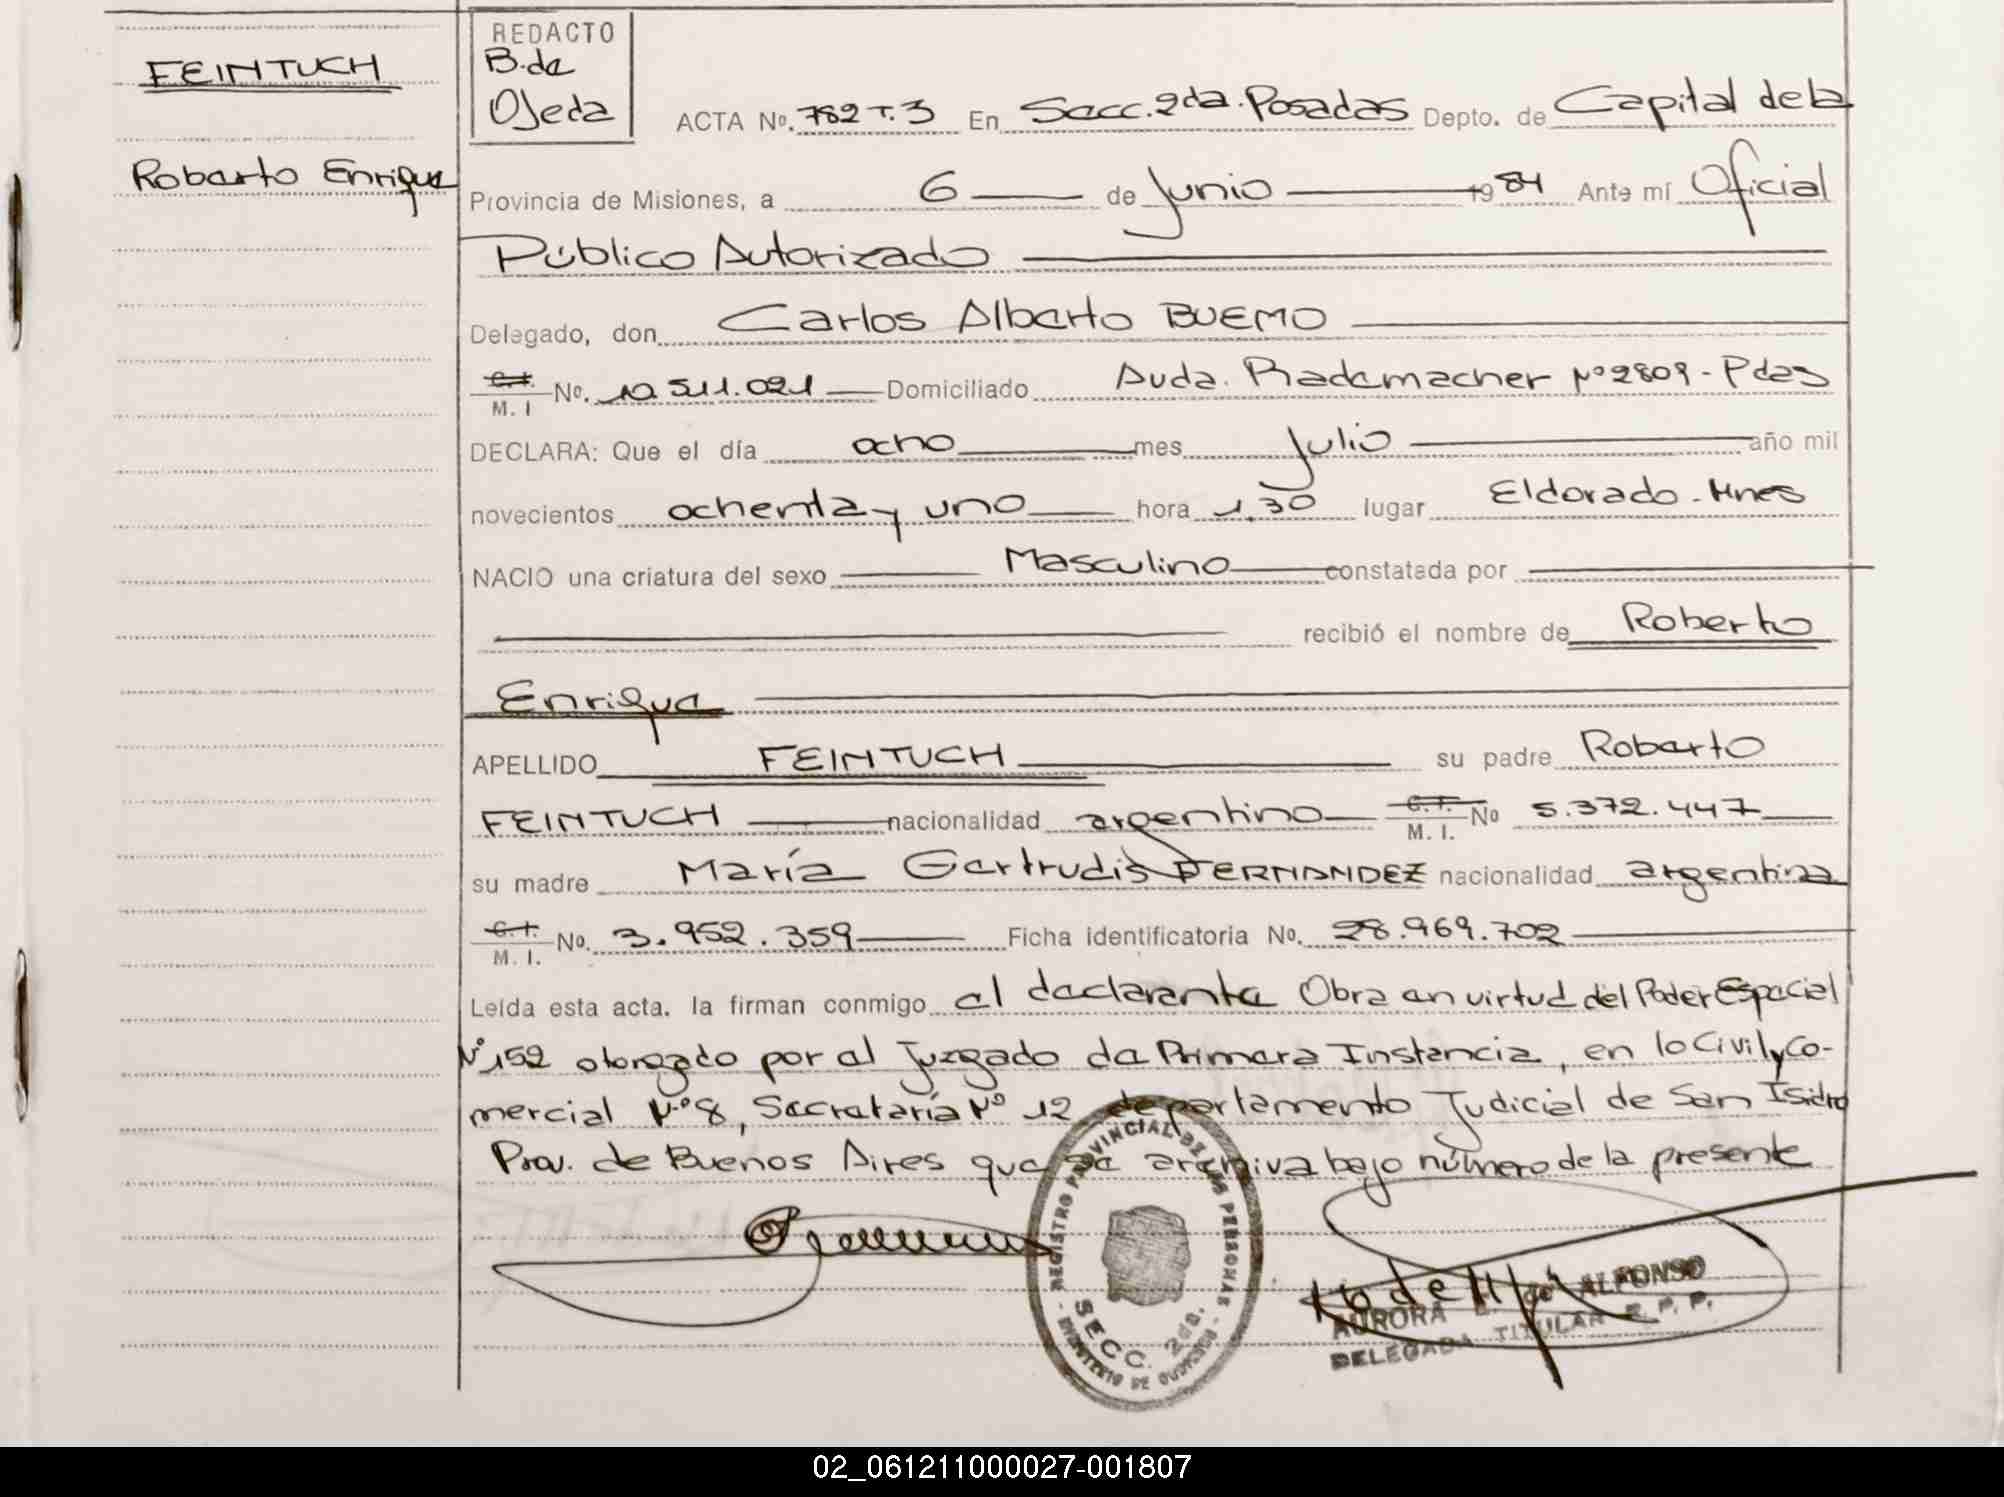 FEINTUCH
Roberto Enrique
REDACTO
B. de
Ojeda
ACTA No. 782 T. 3 En Secc. 2da. Posadas Depto. de Capital de la
Provincia de Misiones, a 6 de Junio 1984 Ante mí Oficial
Público Autorizado
Delegado, don Carlos Alberto BUEMO
C.I. M. I No. 10.511.021 Domiciliado Avda. Rademacher Nº 2809 - Pdas
DECLARA: Que el día ocho mes Julio año mil
novecientos ochenta y uno hora 1,30 lugar Eldorado - Mnes
NACIO una criatura del sexo Masculino constatada por
recibió el nombre de Roberto
Enrique
APELLIDO FEINTUCH su padre Roberto
FEINTUCH nacionalidad argentino C.I. M. I. No 5.372.447
su madre María Gertrudis FERNANDEZ nacionalidad argentina
C.I. M. I. No. 3.952.359 Ficha identificatoria No. 28.969.702
Leída esta acta, la firman conmigo el declarante Obra en virtud del Poder Especial
Nº 152 otorgado por el Juzgado de Primera Instancia, en lo Civil y Co-
mercial Nº 8, Secretaría Nº 12 departamento Judicial de San Isidro
Prov. de Buenos Aires que se archiva bajo número de la presente
REGISTRO PROVINCIAL DE LAS PERSONAS
SECC. 2da.
AURORA de ALFONSO
DELEGADA TITULAR R. P. P.
02_061211000027-001807